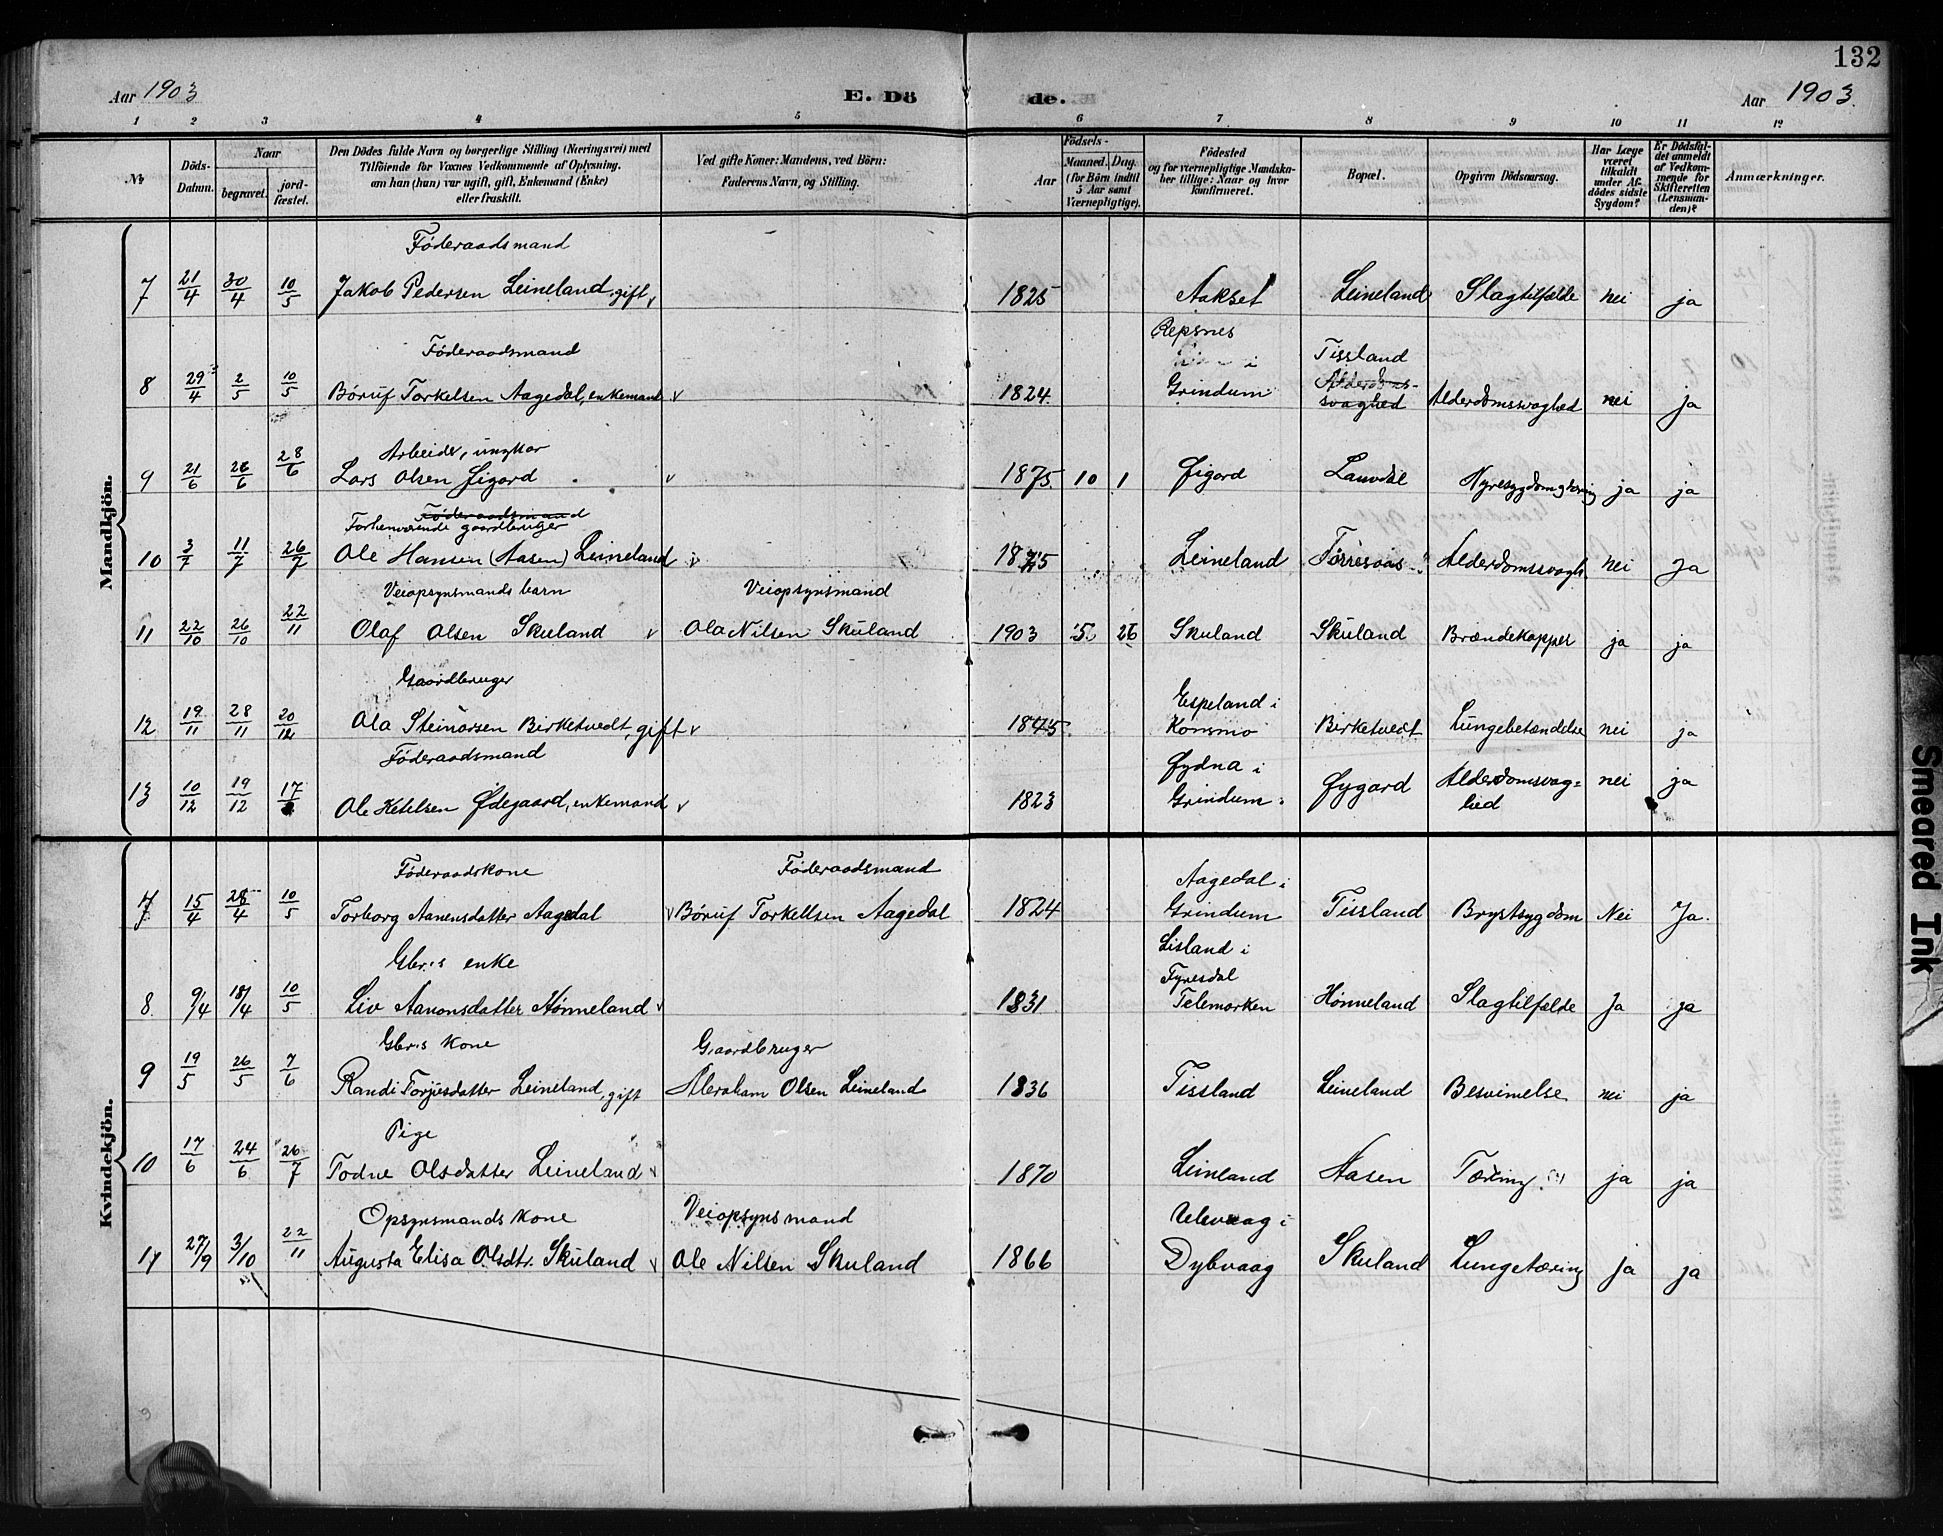 132
Aar 1903
E. Dö
de.
Aar 1903.
1 2 3 4 5 6 7 8 9 10 11 12
№
Döds-Datum.
Naar
begravet.
jord-fæstet.
Den Dödes fulde Navn og borgerlige Stilling (Næringsvei) med
Tilföiende for Voxnes Vedkommende af Oplysning.
om han (hun) var ugift, gift, Enkemand (Enke)
eller fraskilt.
Ved gifte Koner: Mandens, ved Börn:
Faderens Navn, og Stilling.
Födsels-
Aar
Maaned. Dag.
(for Börn indtil
5 Aar samt
Værnepligtige).
Födested
og for værnepligtige Mandska-
ber tillige: Naar og hvor
konfirmeret.
Bopæl.
Opgiven Dödsaarsag.
Har Læge
været
tilkaldt
under Af-
dödes sidste
Sygdom?
Er Dödsfal-
det anmeldt
af Vedkom-
mende for
Skifteretten
(Lensman-
den)?
Anmærkninger.
Mandkjön.
Föderaadsmand
7 21/4 30/4 10/5 Jakob Pedersen Leineland, gift 1825 Aakset Leineland Slagtilfælde nei ja
Föderaadsmand Repsnes i Tissland
8 29/4 2/5 10/5 Böruf Torkelsen Aagedal, enkemand 1824 Grindum Alderdoms-svaghed Alderdomssvaghed nei ja
Arbeider, ungkar
9 21/6 26/6 28/6 Lars Olsen Øigard 1875 10 1 Øigard Lauvdal Nyresygdom ja ja
Föderaadsmand
Forhenværende gaardbruger
10 3/7 11/7 26/7 Ole Hansen (Aasen) Leineland Leineland Alderdomssvagh. nei Ja
Veiopsynsmands barn Veiopsynsmand
11 22/10 26/10 22/11 Olaf Olsen Skuland Ola Nilsen Skuland 1903 5 26 Skuland Skuland Brændekopper ja ja
Gaardbruger Espeland i
12 19/11 28/11 20/12 Ola Steinarsen Birketvedt, gift 1845 Konsmo Birketvedt Lungebetændelse nei ja
Föderaadsmand Øydna i Alderdomsvag=
13 10/12 19/12 17 Ole Ketelsen Ødegaard, enkemand 1823 Grindum Øygard hed nei ja
Kvindekjön.
Föderaadskone Föderaadsmand Aagedal i
7 15/4 28/4 10/5 Torborg Aanensdatter Aagedal Böruf Torkellsen Aagedal 1824 Grindum Tissland Brystsygdom Nei Ja.
Gbr.s enke Lisland i Fyresdal
8. 9/4 18/4 10/5 Liv Aanonsdatter Hönneland 1831 Telemarken Hönneland Slagtilfælde Ja ja
Gbr.s Kone Gaardbruger
9 19/5 26/5 7/6 Randi Torjusdatter Leineland, gift Abraham Olsen Leineland 1836 Tissland Leineland Besvimelse nei ja
Pige
10 17/6 24/6 26/7 Todne Olsdatter Leineland 1870 Leinland Aasen Tæring ja ja
Opsynsmands Kone Veiopsynsmand i
11 27/9 3/10 22/11 Augusta Elisa Olsdtr. Skuland Ole Nilsen Skuland 1866 Dybvaag Skuland Lungetæring Ja ja
Smeared Ink